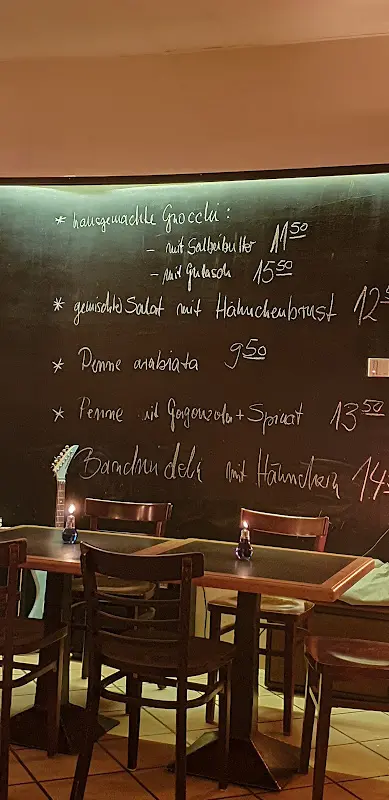 * hausgemachte Gnocchi:
- mit Salbeibutter 11 50
- mit Gulasch 15 50
* gemischter Salat mit Hähnchenbrust 12 5
* Penne arabiata 9 50
* Penne mit Gorgonzola + Spinat 13 50
Bandnudeln mit Hähnchen 14